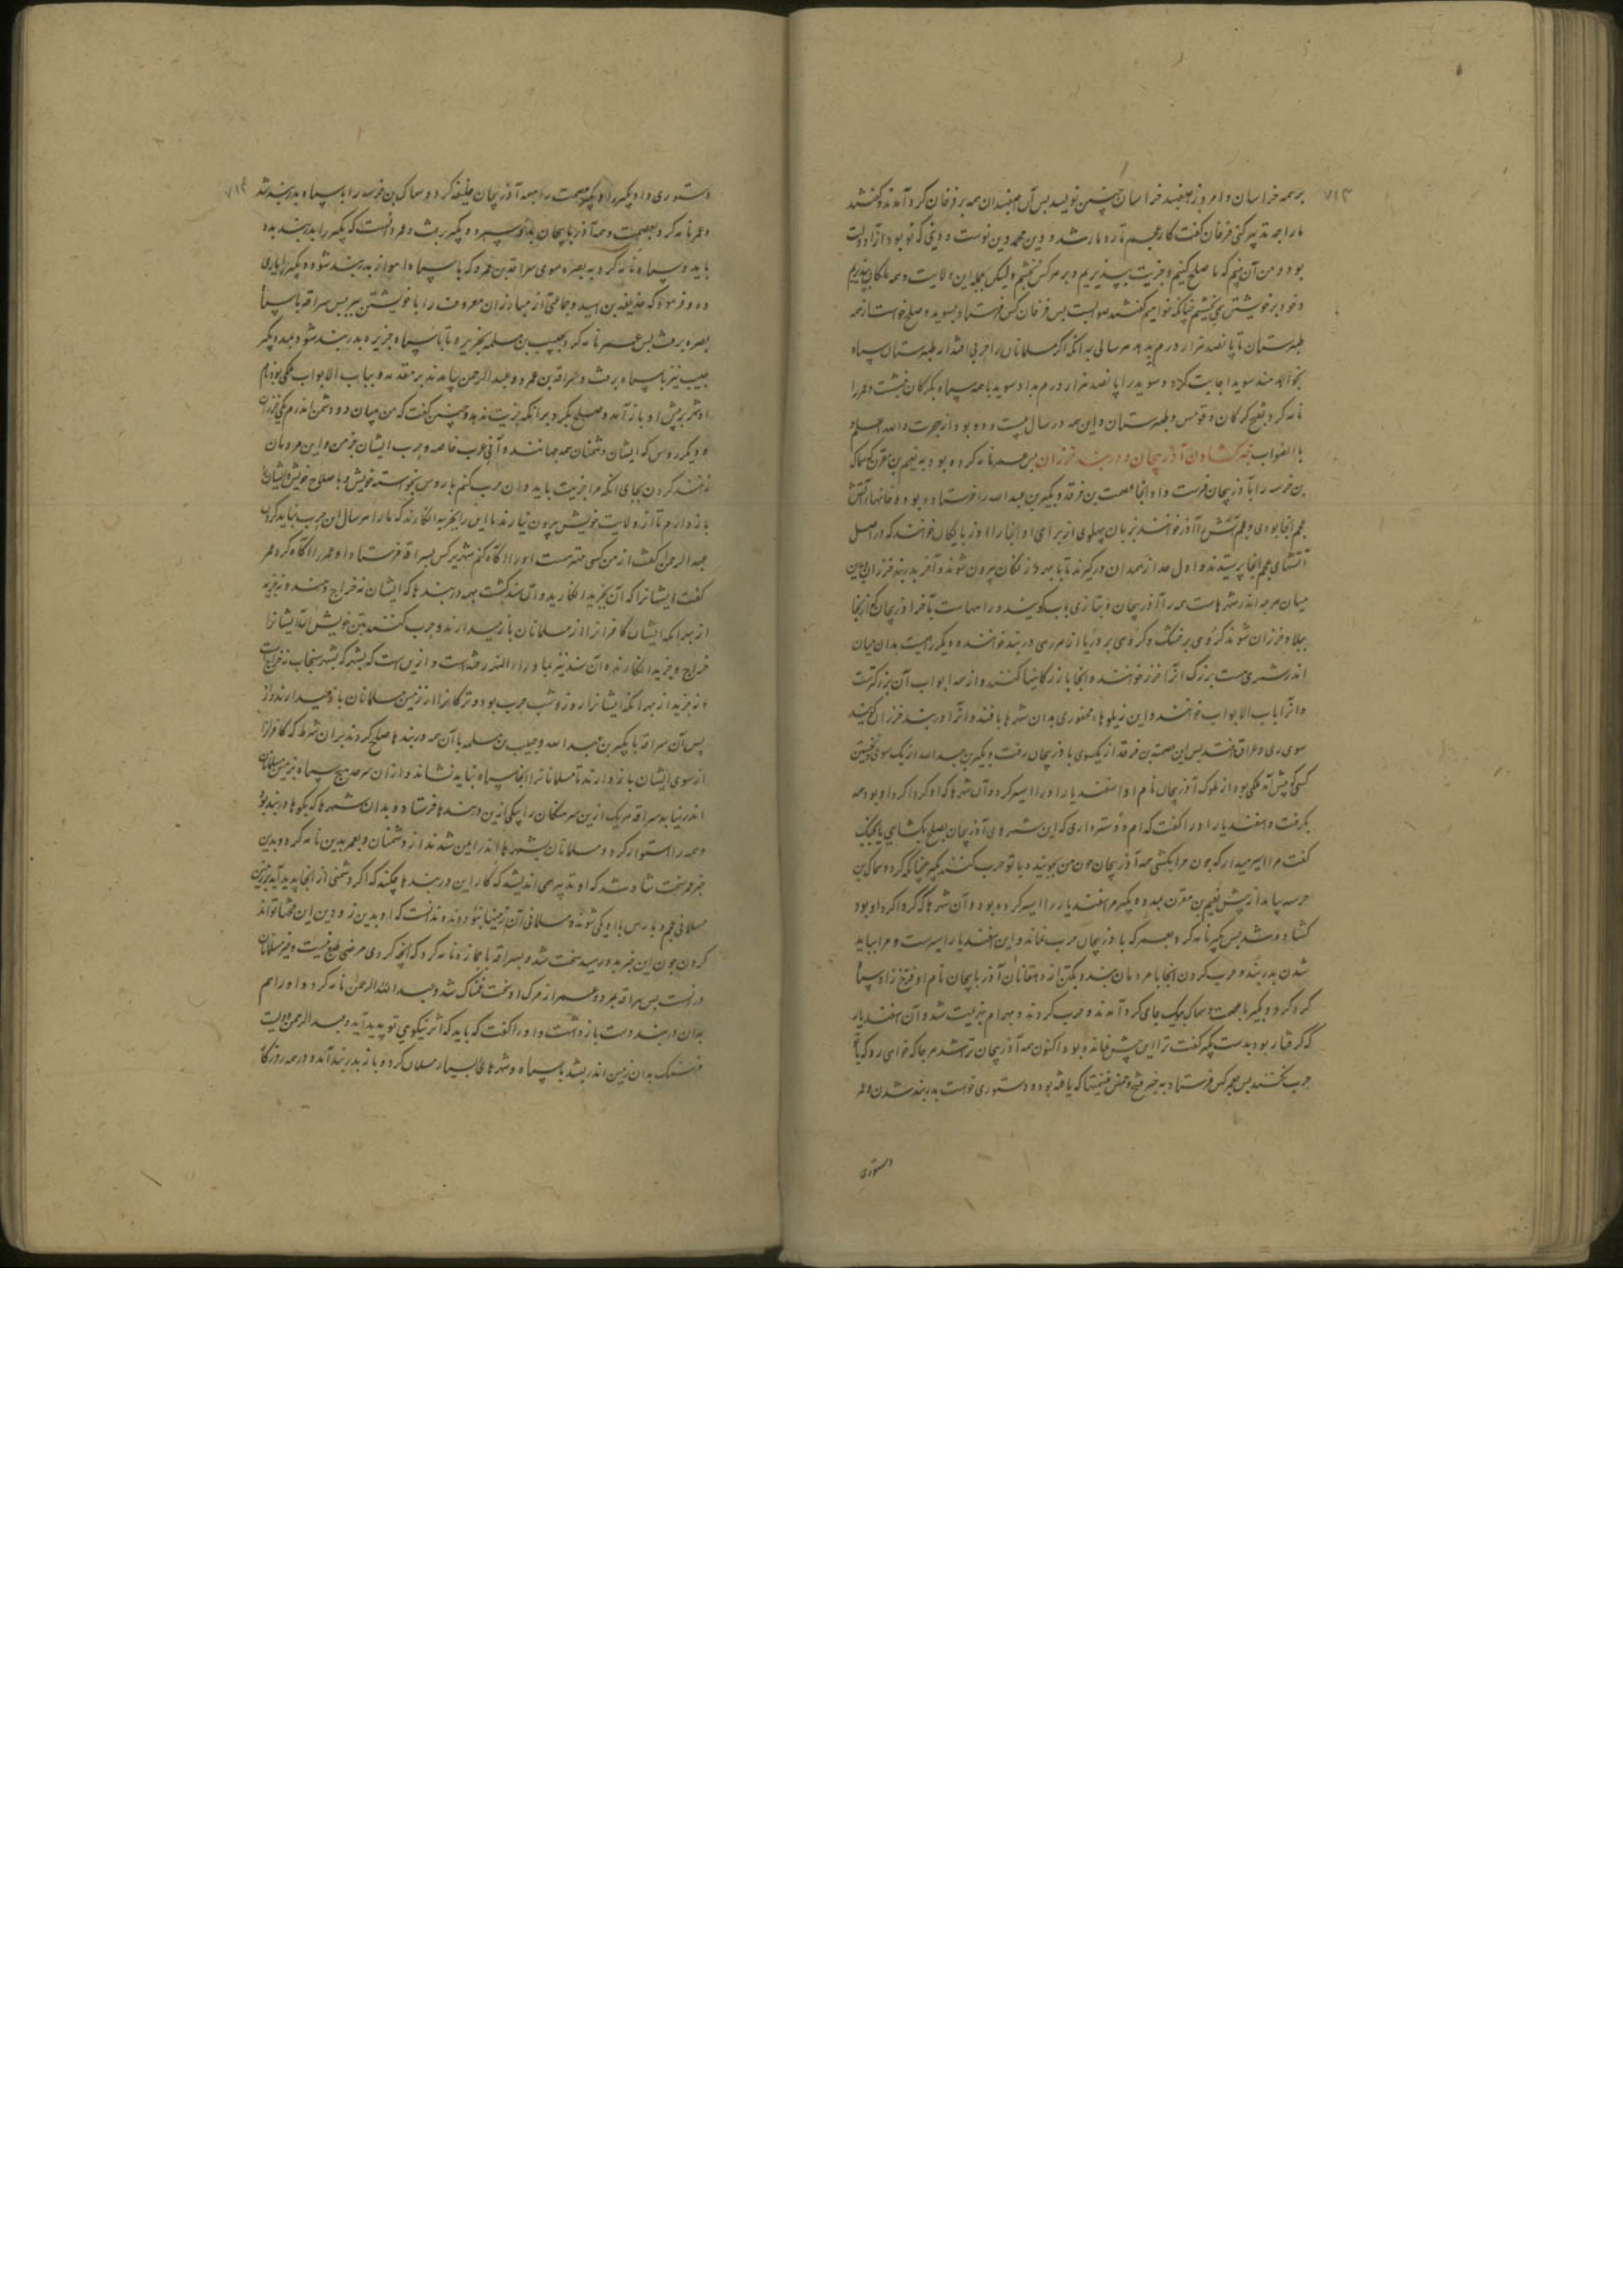 ۷۱۳
بر همه خراسان و امروز اصفهبد خراسان چنین نویسد پس آن اصفهبدان همه بر فرخان گرد آمدند و گفتند
ما را چه تدبیر کنی فرخان گفت کار عجم تار و مار شد و دین محمد دین نوست و دینی که نو بود آنرا دولت
بود و من آن بینم که ما صلح کنیم و جزیت بپذیریم و بر هر کس بخشیم ولیکن بجمله این ولایت و همه ملکان بپذیریم
و خود بر خویشتن می بخشیم چنانکه خواهیم گفتند صوابست پس فرخان کس فرستاد بسوید و صلح خواست از همه
طبرستان تا پانصد هزار درم بدهد هر سالی بدانکه اگر مسلمانان را حربی افتد از طبرستان سپاه
نخواهند سوید اجابت کرد و سوید را پانصد هزار درم بداد سوید با همه سپاه بگرگان نبشت و عمر را
نامه کرد بفتح گرگان و قومس و طبرستان و این همه در سال بیست و دو بود از هجرت والله اعلم
بالصواب خبر گشادن آذربیجان و دربند خزران پس عمر نامه کرده بود به نعیم بن مقرن که سماک
بن خرسه را بآذربیجان فرست و آنجا عصمت بن فرقد و بکیر بن عبدالله را فرستاده بود و خانهاء آتش
عجم آنجا بودی و عجم آتش را آذر خوانند بزبان پهلوی از برای آن آنجا را آذربایگان خوانند که در اصل
آتشهای عجم آنجا پرستیدند و اول حد از همدان در گیرند تا بابهر و زنگان بیرون شوند و آخر بدربند خزران و بدین
میان هر چه اندر شهرهاست همه را آذربیجان و بتازی باب گویند و راهها است تا آخر آذربیجان که از آنجا
ببلاد خزران شوند گروهی بر خشک و گروهی بر دریا از هر رهی دربند خوانند و دیگر رهست بدان میان
اندر شهری هست بزرگ آنرا خزر خوانند و آنجا بازرگانیها کنند و از همه ابواب آن بزرگترست
و آنرا باب الابواب خوانند و این زیلوهاء محفوری بدان شهرها بافند و آنرا دربند خزران گویند
سوی ری و عراق افتد پس این عصمت بن فرقد از یک سوی بآذربیجان رفت و بکیر بن عبدالله از یک سوی و نخستین
کسی که پیش آمد ملکی بود از ملوک آذربیجان نام او اسفندیار او را اسیر کرد و آن شهرها که او گرداگرد او بود همه
بگرفت و اسفندیار او را گفت کدام دوستر داری که این شهرهای آذربیجان بصلح بگشایی یا بجنگ
گفت مرا اسیر میدار که چون مرا بکشی همه آذربیجان خون من جویند و با تو حرب کنند بکیر همچنانکه کرد و سماک بن
خرسه بیامد از پیش نعیم بن مقرن بمدد و بکیر مر اسفندیار را اسیر کرده بود و آن شهرها که گرداگرد او بود
گشاده شد پس بکیر نامه کرد بعمر که بآذربیجان حرب نماند و این اسفندیار اسیرست و مرا بباید
شدن بدربند و حرب کردن آنجا با مردمان بند و یکتن از دهقانان آذربایجان نام او فرخ زاد سپاه
گرد کرد و بکیر با عصمت و سماک بیک جای گرد آمدند و حرب کردند و بهرام بهزیمت شد و آن اسفندیار
که گرفتار بود بدست بکیر گفت ترا این پیش نمانده بود اکنون همه آذربیجان ترا شد هر جا که خواهی رو که با
حرب نکنند پس بعمر کس فرستاد بخبر فتح و خمس غنیمتها که یافته بود و دستوری خواست بدربند شدن و عمر
دستوری
۷۱۴
دستوری داد بکیر را و بکیر عصمت را بهمه آذربیجان خلیفه کرد و سماک بن خرسه را با سپاه بدربند شد
و عمر نامه کرد بعصمت و همه آذربایجان بدو سپرد و بکیر برفت و عمر دانست که بکیر را بدربند مدد
باید و سپاه و نامه کرد به بصره سوی سراقه بن عمرو که با سپاه اهواز بدربند شود و بکیر را یاری
ده و فرمود که حذیفه بن اسید و جماعتی از مبارزان معروف را با خویشتن ببر پس سراقه با سپاه
بصره برفت پس عمر نامه کرد بحبیب بن مسلمه بجزیره تا با سپاه جزیره بدربند شود بمدد بکیر
حبیب نیز با سپاه برفت و سراقه بن عمرو و عبدالرحمن بیامدند بر مقدمه و بباب الابواب ملکی بود نام
او شهربر پیش او باز آمد و صلح بکرد بر آنکه جزیت ندهد و چنین گفت که من میان دو دشمن اندرم یکی خزران
و دیگر روس که ایشان دشمنان همه جهانند و آن عرب خاصه و حرب ایشان جز من و این مردمان
ندانند کردن بجای آنکه مرا جزیت باید دادن حرب کنم با روس بخواسته خویش و با صلاح خویش و ایشان را
باز دارم تا از ولایت خویش بیرون نیارند ما این را بجزیه انگارند که ما را هر سال این حرب بباید کردن
عبدالرحمن گفت از من کسی مهترست او را آگاه کنم شهربر کس بسراقه فرستاد و عمر را آگاه کرد عمر
گفت ایشانرا که آن بجزیه انگارید و آن سنت گشت بهمه دربندها که ایشان نه خراج دهند و نه جزیه
از بهر آنکه ایشان کافرانرا از مسلمانان باز میدارند و حرب کنند بتن خویش آن ایشانرا
خراج و جزیه انگارند و آن سنت نیز بماوراءالنهر رفته است و ازین است که بشهرکه بشهر سنجاب نه خراجست
و نه جزیه از بهر آنکه ایشانرا روز و شب حرب بود و ترکانرا از زمین مسلمانان باز همیدارند از
پس آن سراقه با بکیر بن عبدالله و حبیب بن مسلمه با آن همه دربندها صلح کردند بر آن شرط که کافرانرا
از سوی ایشان باز دارند تا مسلمانانرا آنجا سپاه نباید نشاند و از آن سر حد هیچ سپاه بزمین مسلمانان
اندر نیاید سراقه هر یک ازین سرهنگان را بیکی ازین دربندها فرستاد و بدان شهرها که بکوهها و دربند بود
و همه را استوار کرد و مسلمانان بشهرها اندر ایمن شدند از دشمنان و بعمر بدین نامه کرد و بدین
خبر عمر سخت شاد شد که او تدبیر همی اندیشید که کار این دربندها چکند که اگر دشمنی از آنجا پدید آید بر زمین
مسلمانی عجم و پارس با او یکی شوند و مسلمانی آن زمینها بشود و ندانست که او بدین زودی این فتحها تواند
کردن چون این خبر بدو رسید سخت شد و بسراقه باز نامه کرد که آنچه کردی مرضی طبع نیست و خیر مسلمانان
درانست پس سراقه بمرد و عمر از مرگ او سخت غمناک شد و عبدالرحمن نامه کرد و او را هم
بدان دربند دست باز داشت و او را گفت که باید که اثر نیکوی تو پدید آید و عبدالرحمن دویست
فرسنگ بدان زمین اندر بشد با سپاه و شهرهای بسیار مسلمان کرد و باز بدربند آمد و در همه روزگار